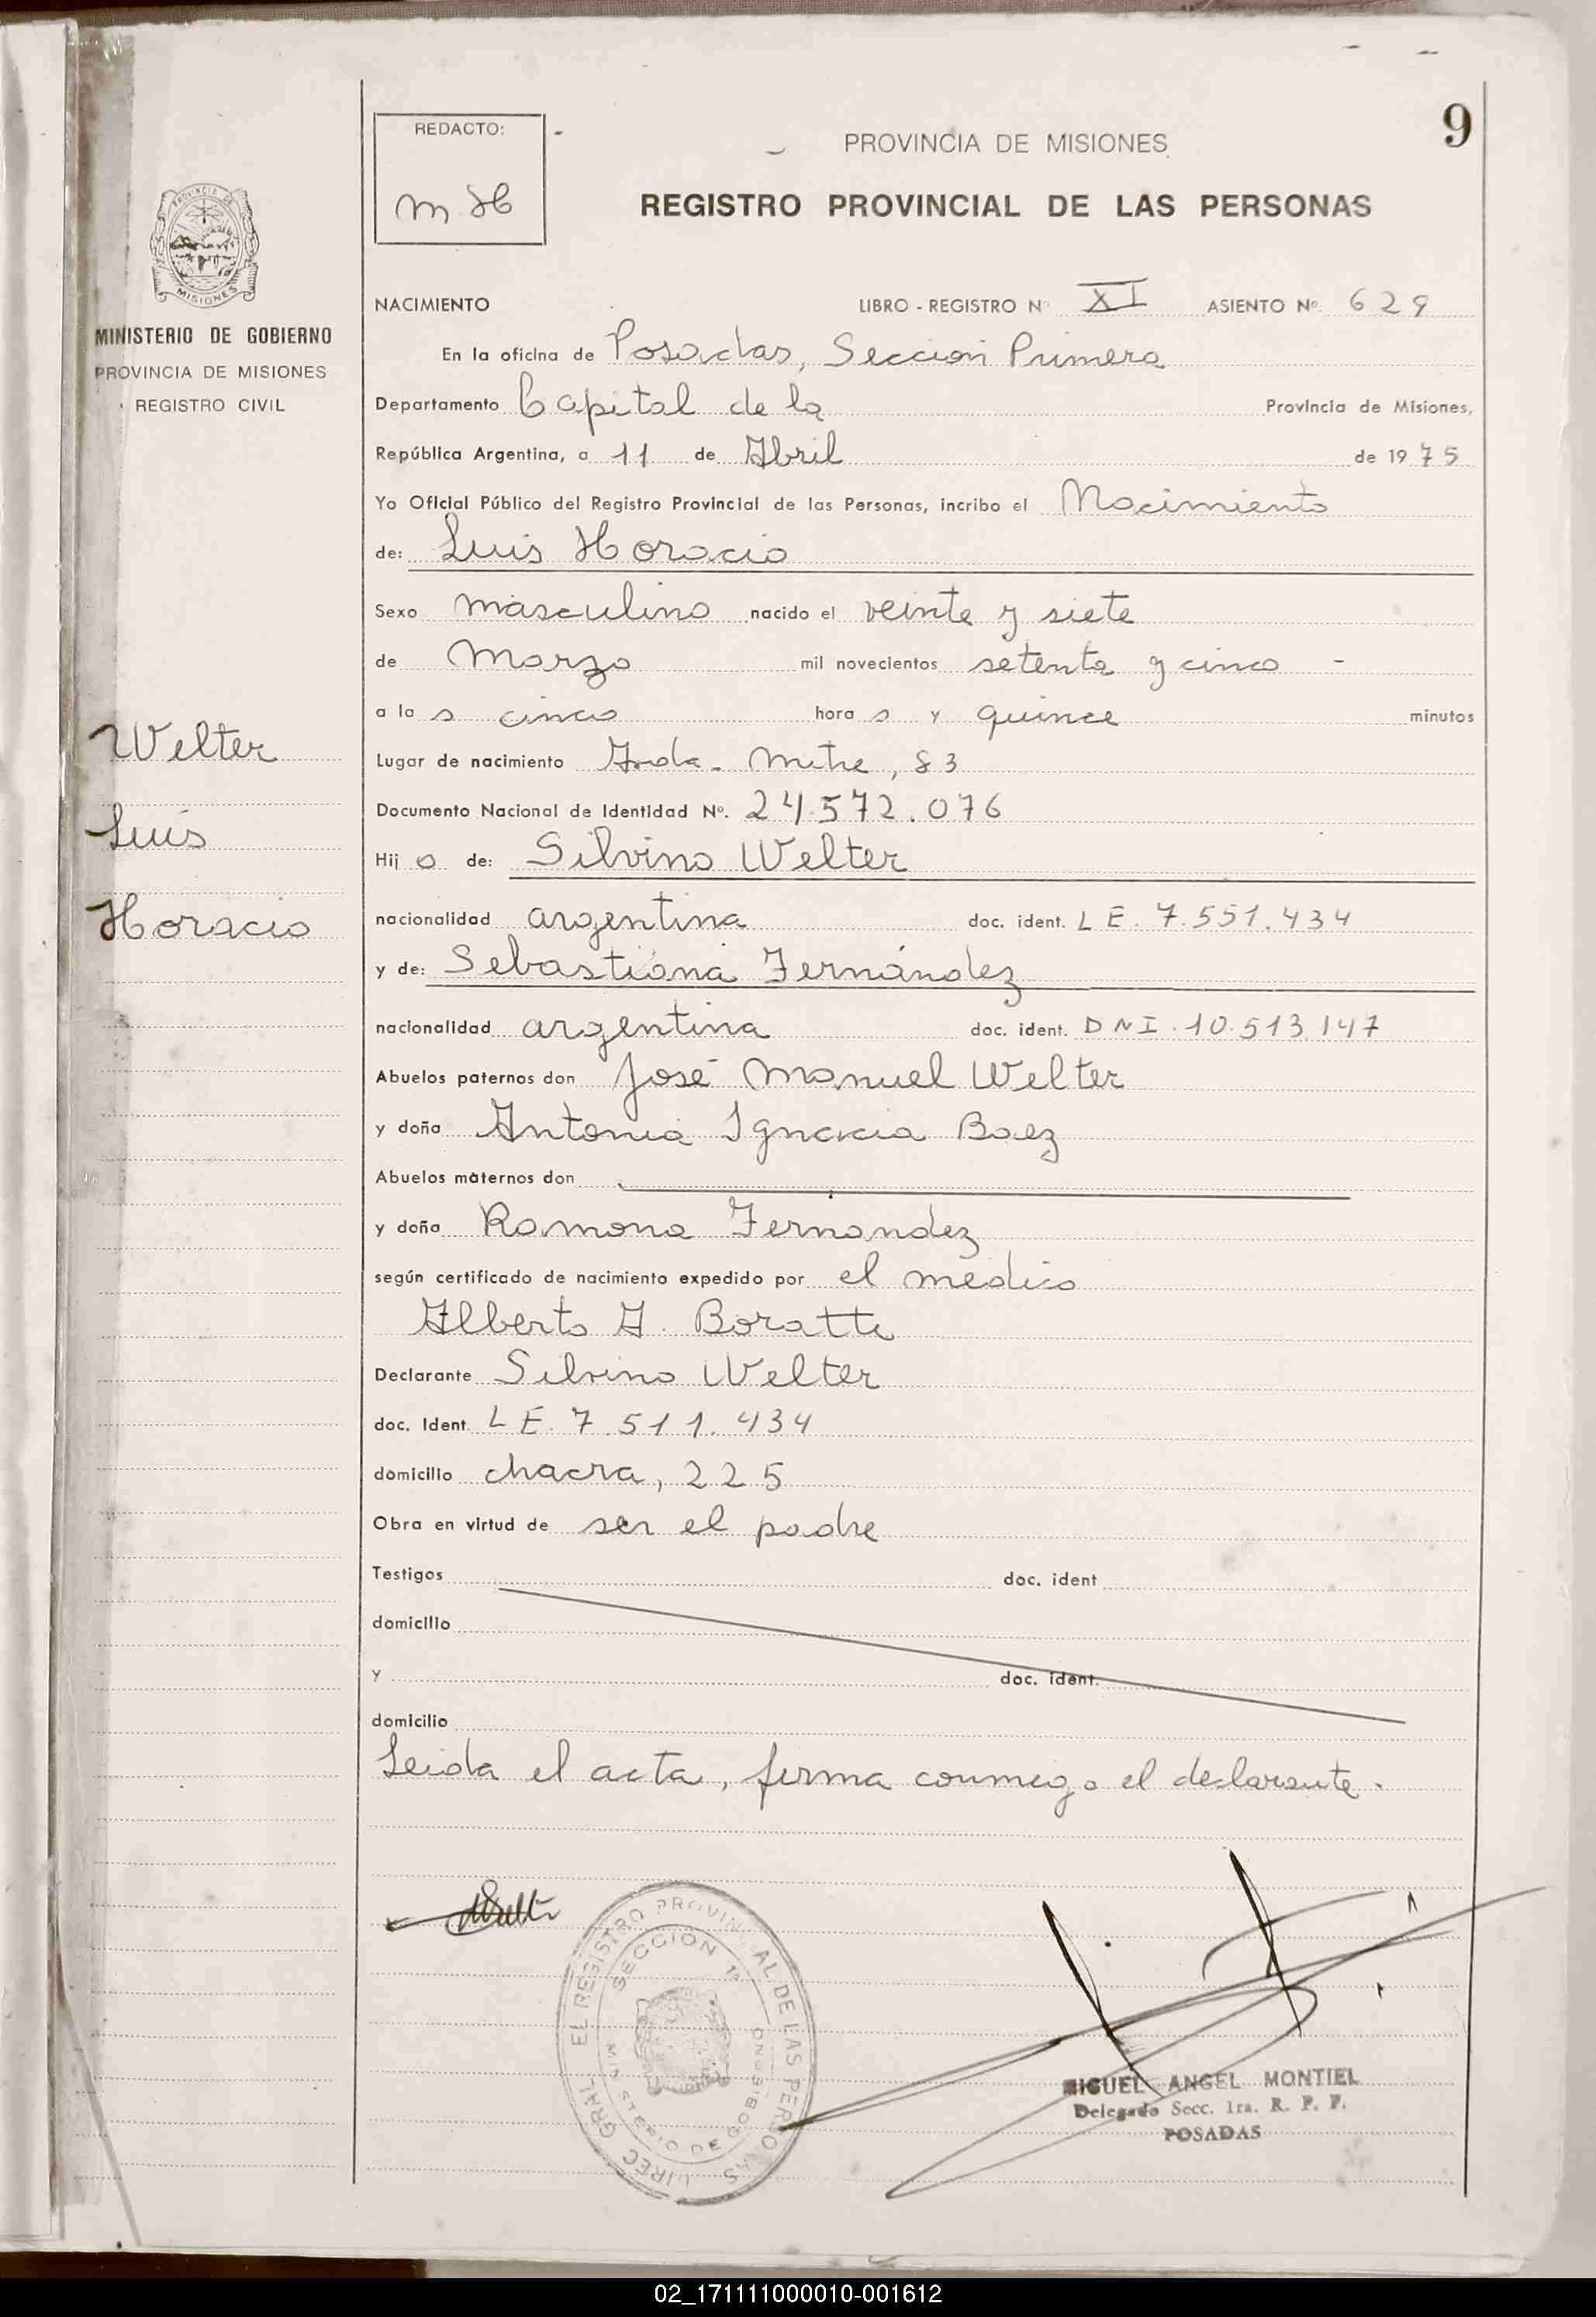 9
REDACTO:
M H
PROVINCIA DE MISIONES
REGISTRO PROVINCIAL DE LAS PERSONAS
PROVINCIA DE
MISIONES
MINISTERIO DE GOBIERNO
PROVINCIA DE MISIONES
REGISTRO CIVIL
NACIMIENTO LIBRO - REGISTRO Nº XI ASIENTO Nº. 629
En la oficina de Posadas, Sección Primera
Departamento Capital de la Provincia de Misiones,
República Argentina, a 11 de Abril de 1975
Yo Oficial Público del Registro Provincial de las Personas, incribo el Nacimiento
de: Luis Horacio
Sexo masculino nacido el veinte y siete
de Marzo mil novecientos setenta y cinco -
a las cinco horas y quince minutos
Lugar de nacimiento Avda. Mitre, 83
Documento Nacional de Identidad Nº. 24.572.076
Hijo de: Silvino Welter
nacionalidad argentina doc. ident. L E. 7.551.434
y de: Sebastiana Fernández
nacionalidad argentina doc. ident. DNI. 10.513.147
Abuelos paternos don José Manuel Welter
y doña Antonia Ignacia Baez
Abuelos maternos don
y doña Ramona Fernandez
según certificado de nacimiento expedido por el medico
Alberto A. Boratti
Declarante Silvino Welter
doc. Ident. L E. 7.511.434
domicilio chacra, 225
Obra en virtud de ser el padre
Testigos doc. ident
domicilio
y doc. ident.
domicilio
Leida el acta, firma conmigo el declarante.
Welter
Luis
Horacio
DIREC GRAL EL REGISTRO PROVIN AL DE LAS PERSO AS
SECCION 1ª
MINISTERIO DE GOBIERNO
MIGUEL ANGEL MONTIEL
Delegado Secc. 1ra. R. P. P.
POSADAS
02_171111000010-001612